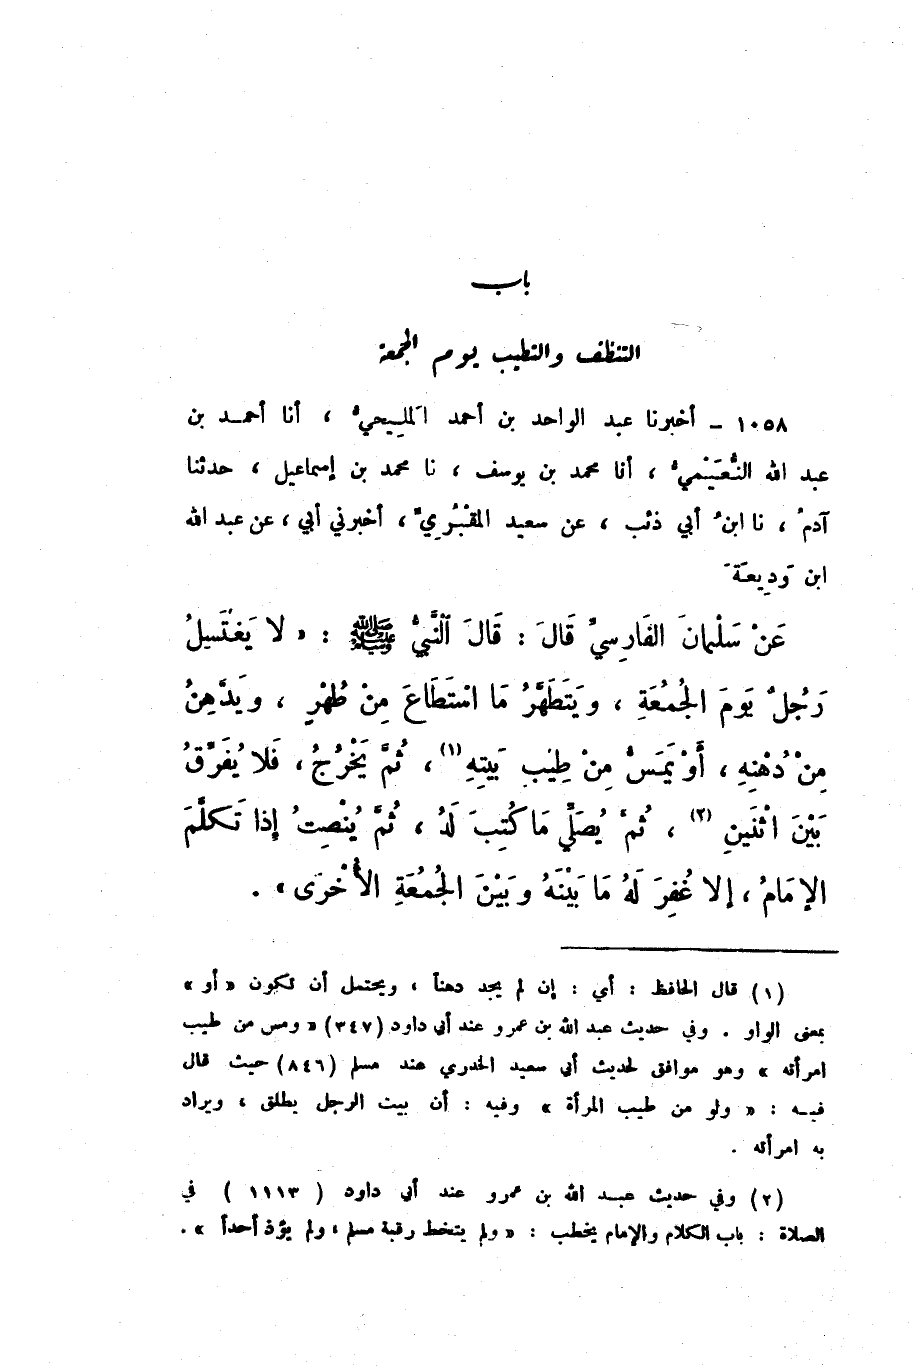 باب
التنظف والتطيب يوم الجمعة
١٠٥٨ - أخبرنا عبد الواحد بن أحمد المَلِيحيُّ ، أنا أحمد بن
عبد الله النُّعَيْميُّ ، أنا محمد بن يوسف ، نا محمد بن إسماعيل ، حدثنا
آدمُ ، نا ابنُ أبي ذئب ، عن سعيد المَقْبُرِيِّ ، أخبرني أبي ، عن عبد الله
ابن وَدِيعَةَ
عَنْ سَلْمانَ الفَارِسيِّ قَالَ : قَالَ ٱلنَّبِيُّ ﷺ : « لا يَغْتَسِلُ
رَجُلٌ يَومَ الجُمُعَةِ ، ويَتَطَهَّرُ مَا اسْتَطَاعَ مِنْ طُهْرٍ ، ويَدَّهِنُ
مِنْ دُهْنِهِ ، أَوْ يَمَسُّ مِنْ طِيبِ بَيتِهِ (١) ، ثُمَّ يَخْرُجُ ، فَلا يُفَرِّقُ
بَيْنَ اثْنَينِ (٢) ، ثُمَّ يُصَلِّي مَا كُتِبَ لَهُ ، ثُمَّ يُنْصِتُ إذا تَكلَّمَ
الإمَامُ ، إلا غُفِرَ لَهُ مَا بَيْنَهُ وبَيْنَ الجُمُعَةِ الأُخْرَى » .
(١) قال الحافظ : أي : إن لم يجد دهناً ، ويحتمل أن تكون « أو »
بمعنى الواو . وفي حديث عبد الله بن عمرو عند أبي داود (٣٤٧) « ومس من طيب
امرأته » وهو موافق لحديث أبي سعيد الخدري عند مسلم (٨٤٦) حيث قال
فيه : « ولو من طيب المرأة » وفيه : أن بيت الرجل يطلق ، ويراد
به امرأته .
(٢) وفي حديث عبد الله بن عمرو عند أبي داود ( ١١١٣ ) في
الصلاة : باب الكلام والإمام يخطب : « ولم يتخط رقبة مسلم ، ولم يؤذ أحداً » .